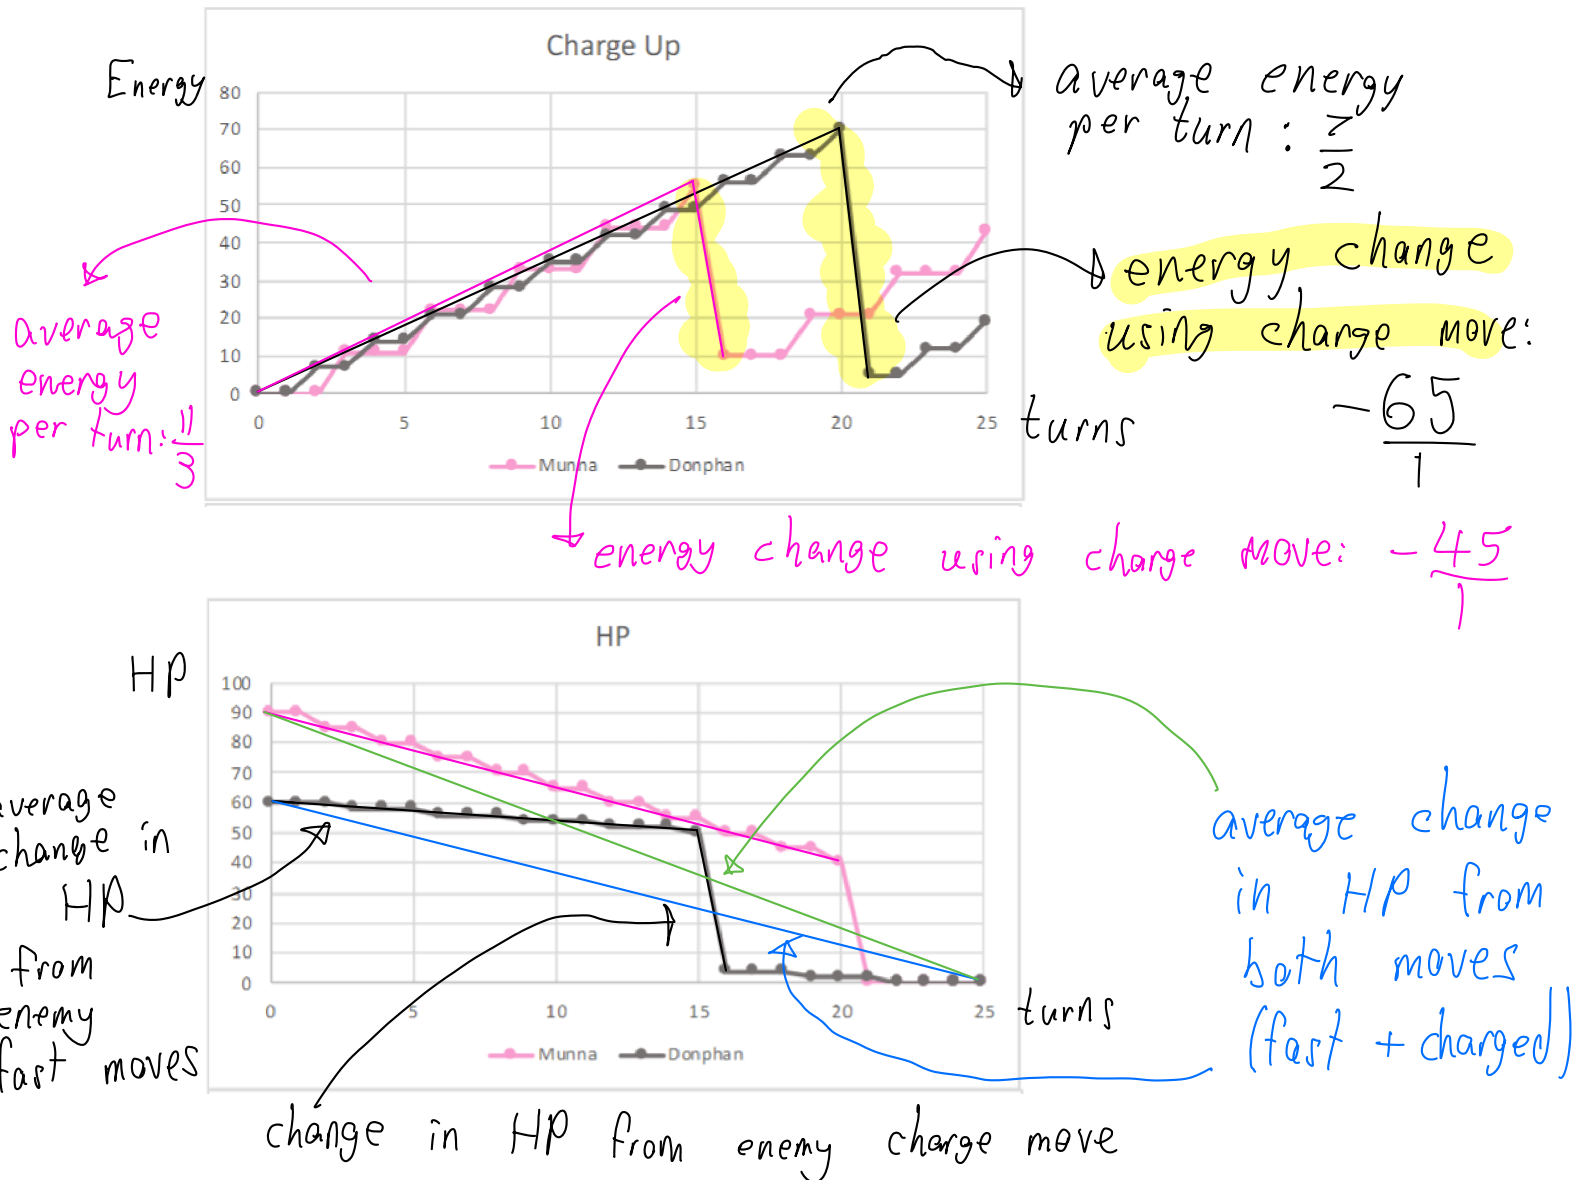 Charge Up
Energy
80
70
60
50
40
30
20
10
0
0 5 10 15 20 25
turns
Munna Donphan
average energy
per turn : 7/2
energy change
using charge move:
-65/1
average
energy
per turn: 11/3
energy change using charge move: -45/1
HP
HP
100
90
80
70
60
50
40
30
20
10
0
0 5 10 15 20 25
turns
Munna Donphan
average
change in
HP
from
enemy
fast moves
average change
in HP from
both moves
(fast + charged)
change in HP from enemy charge move